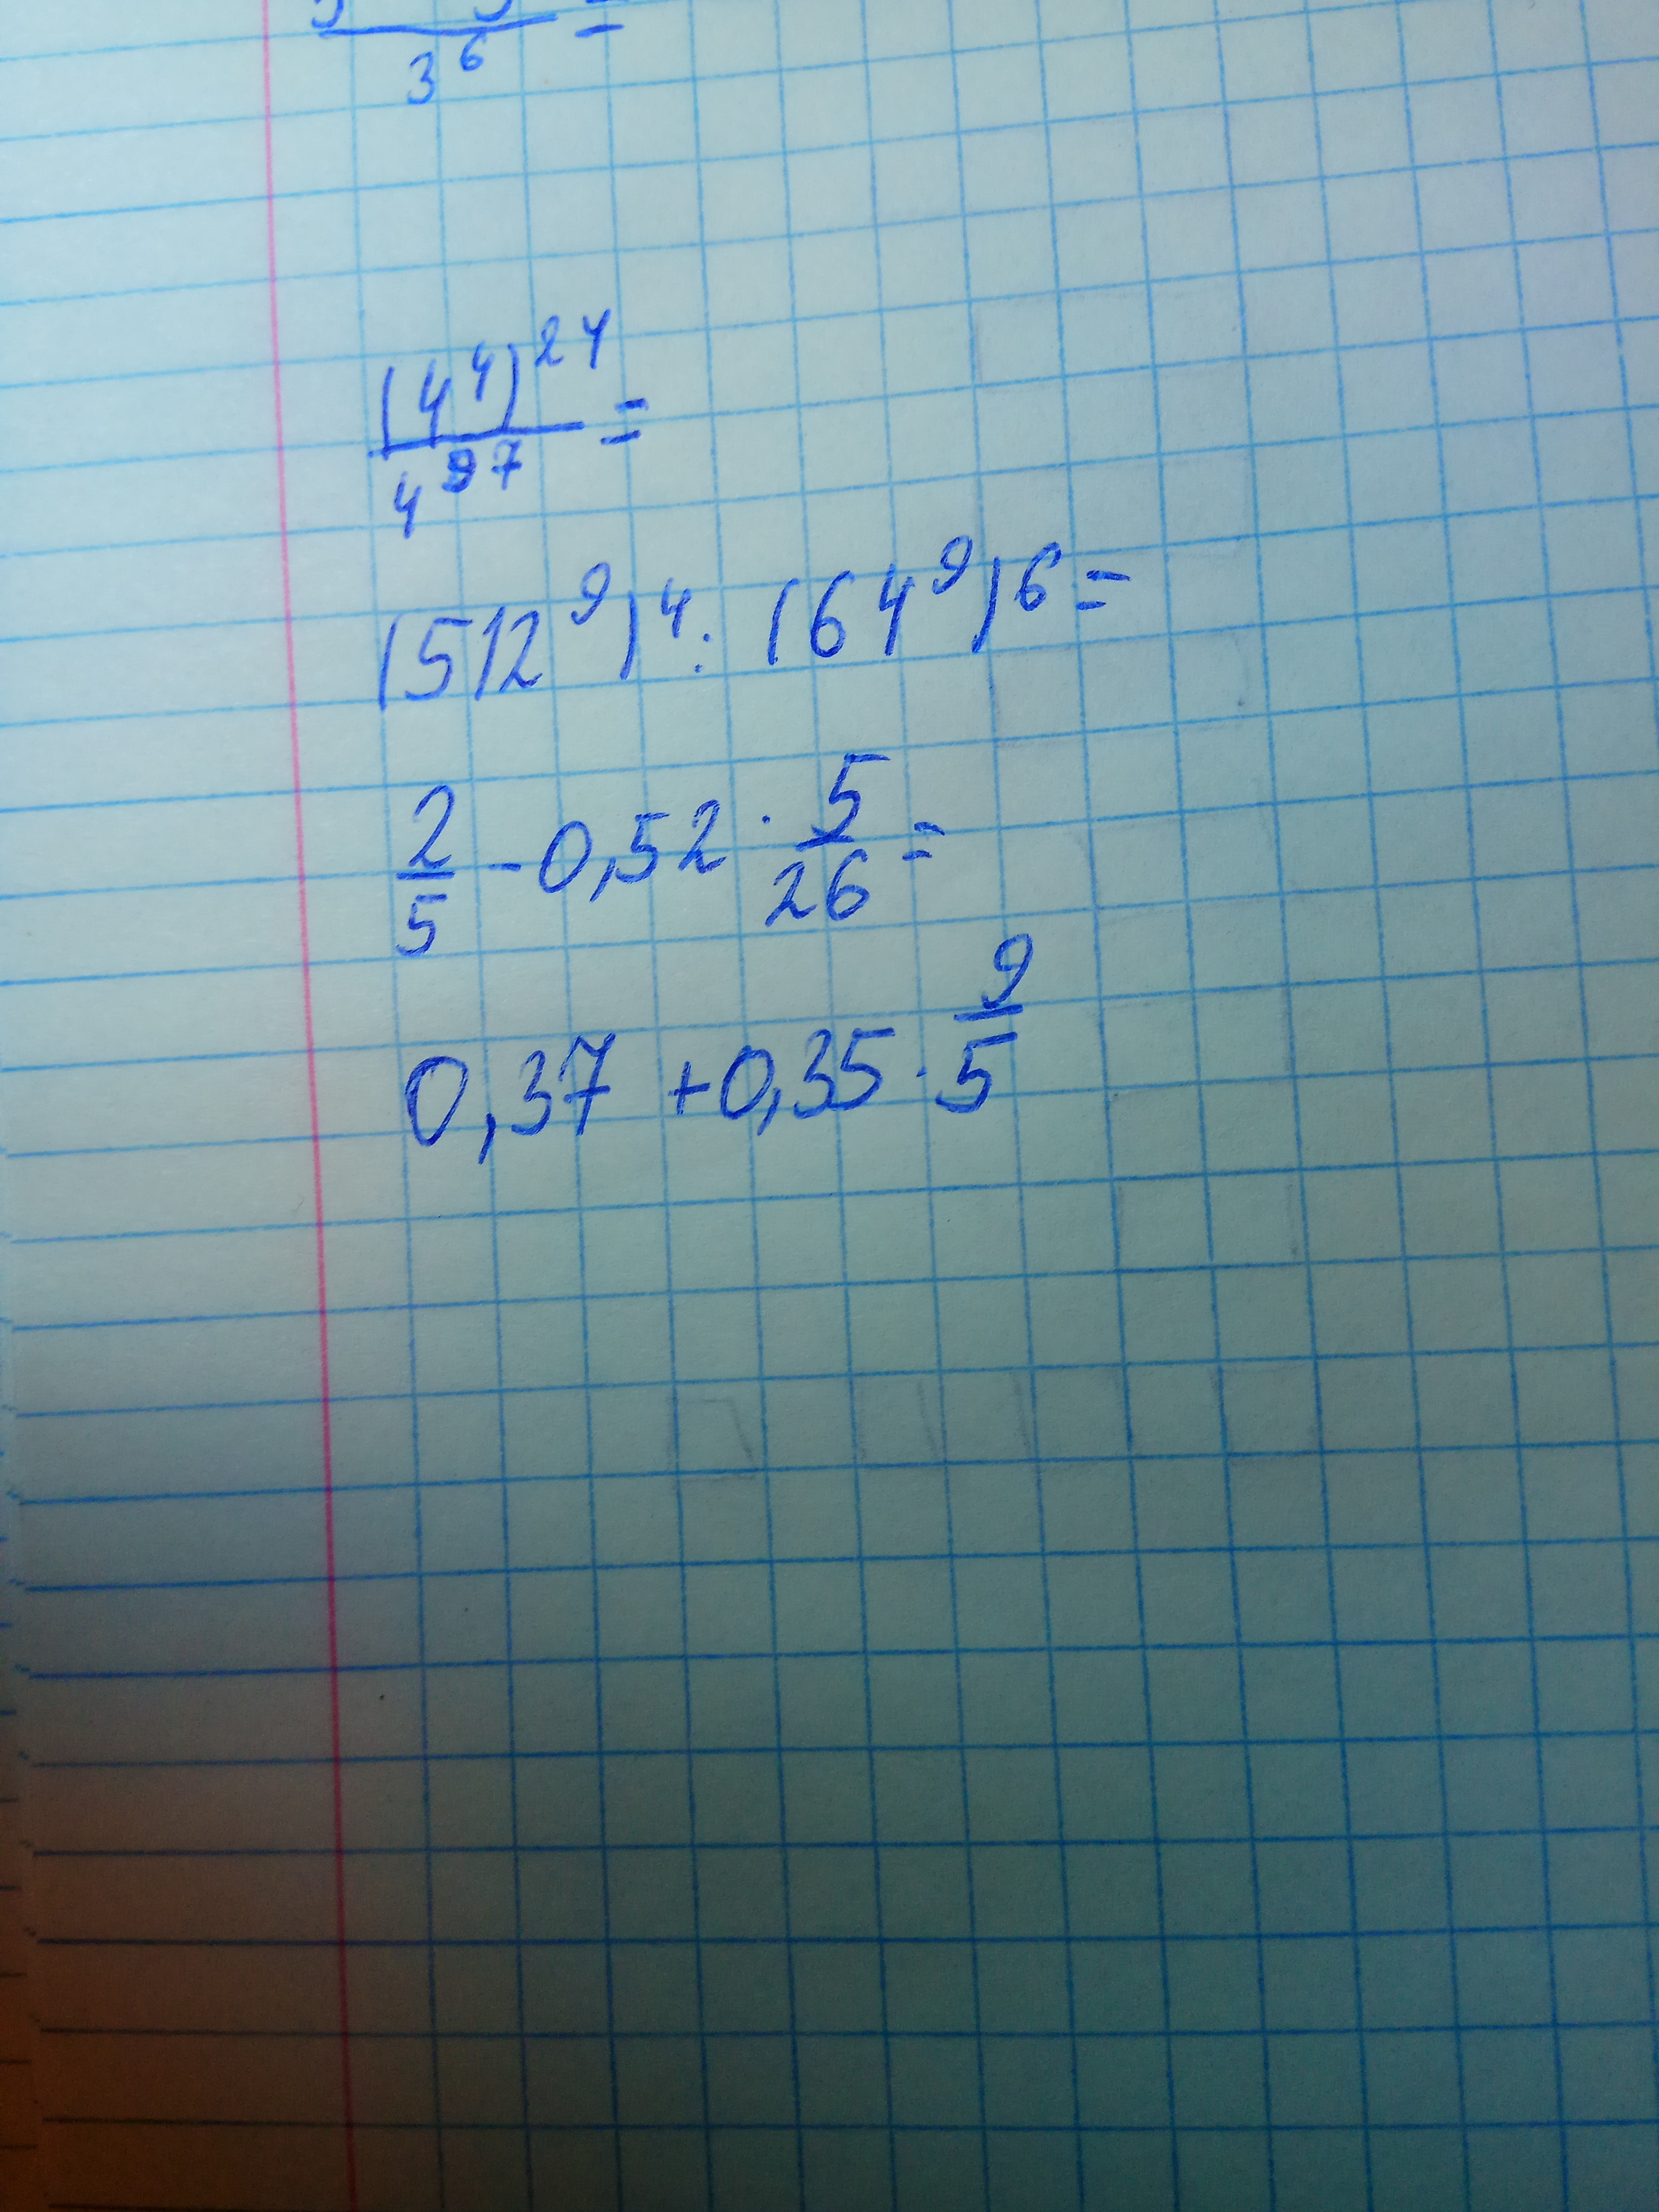 3⁶ =
(4⁴)²⁴ / 4⁹⁷ =
(512⁹)⁴ : (64⁹)⁶ =
2/5 - 0,52 · 5/26 =
0,37 + 0,35 · 9/5